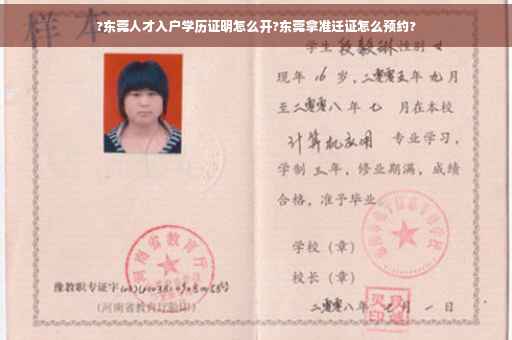 ?东莞人才入户学历证明怎么开?东莞拿准迁证怎么预约?
样本
学生段毅琳性别女
现年16岁,二零零五年九月
至二零零八年七月在本校
计算机应用 专业学习,
学制三年,修业期满,成绩
合格,准予毕业
学校(章)
校长(章)
二零零八年 月一日
河南省教育厅
豫教职专证字
(河南省教育厅验印)